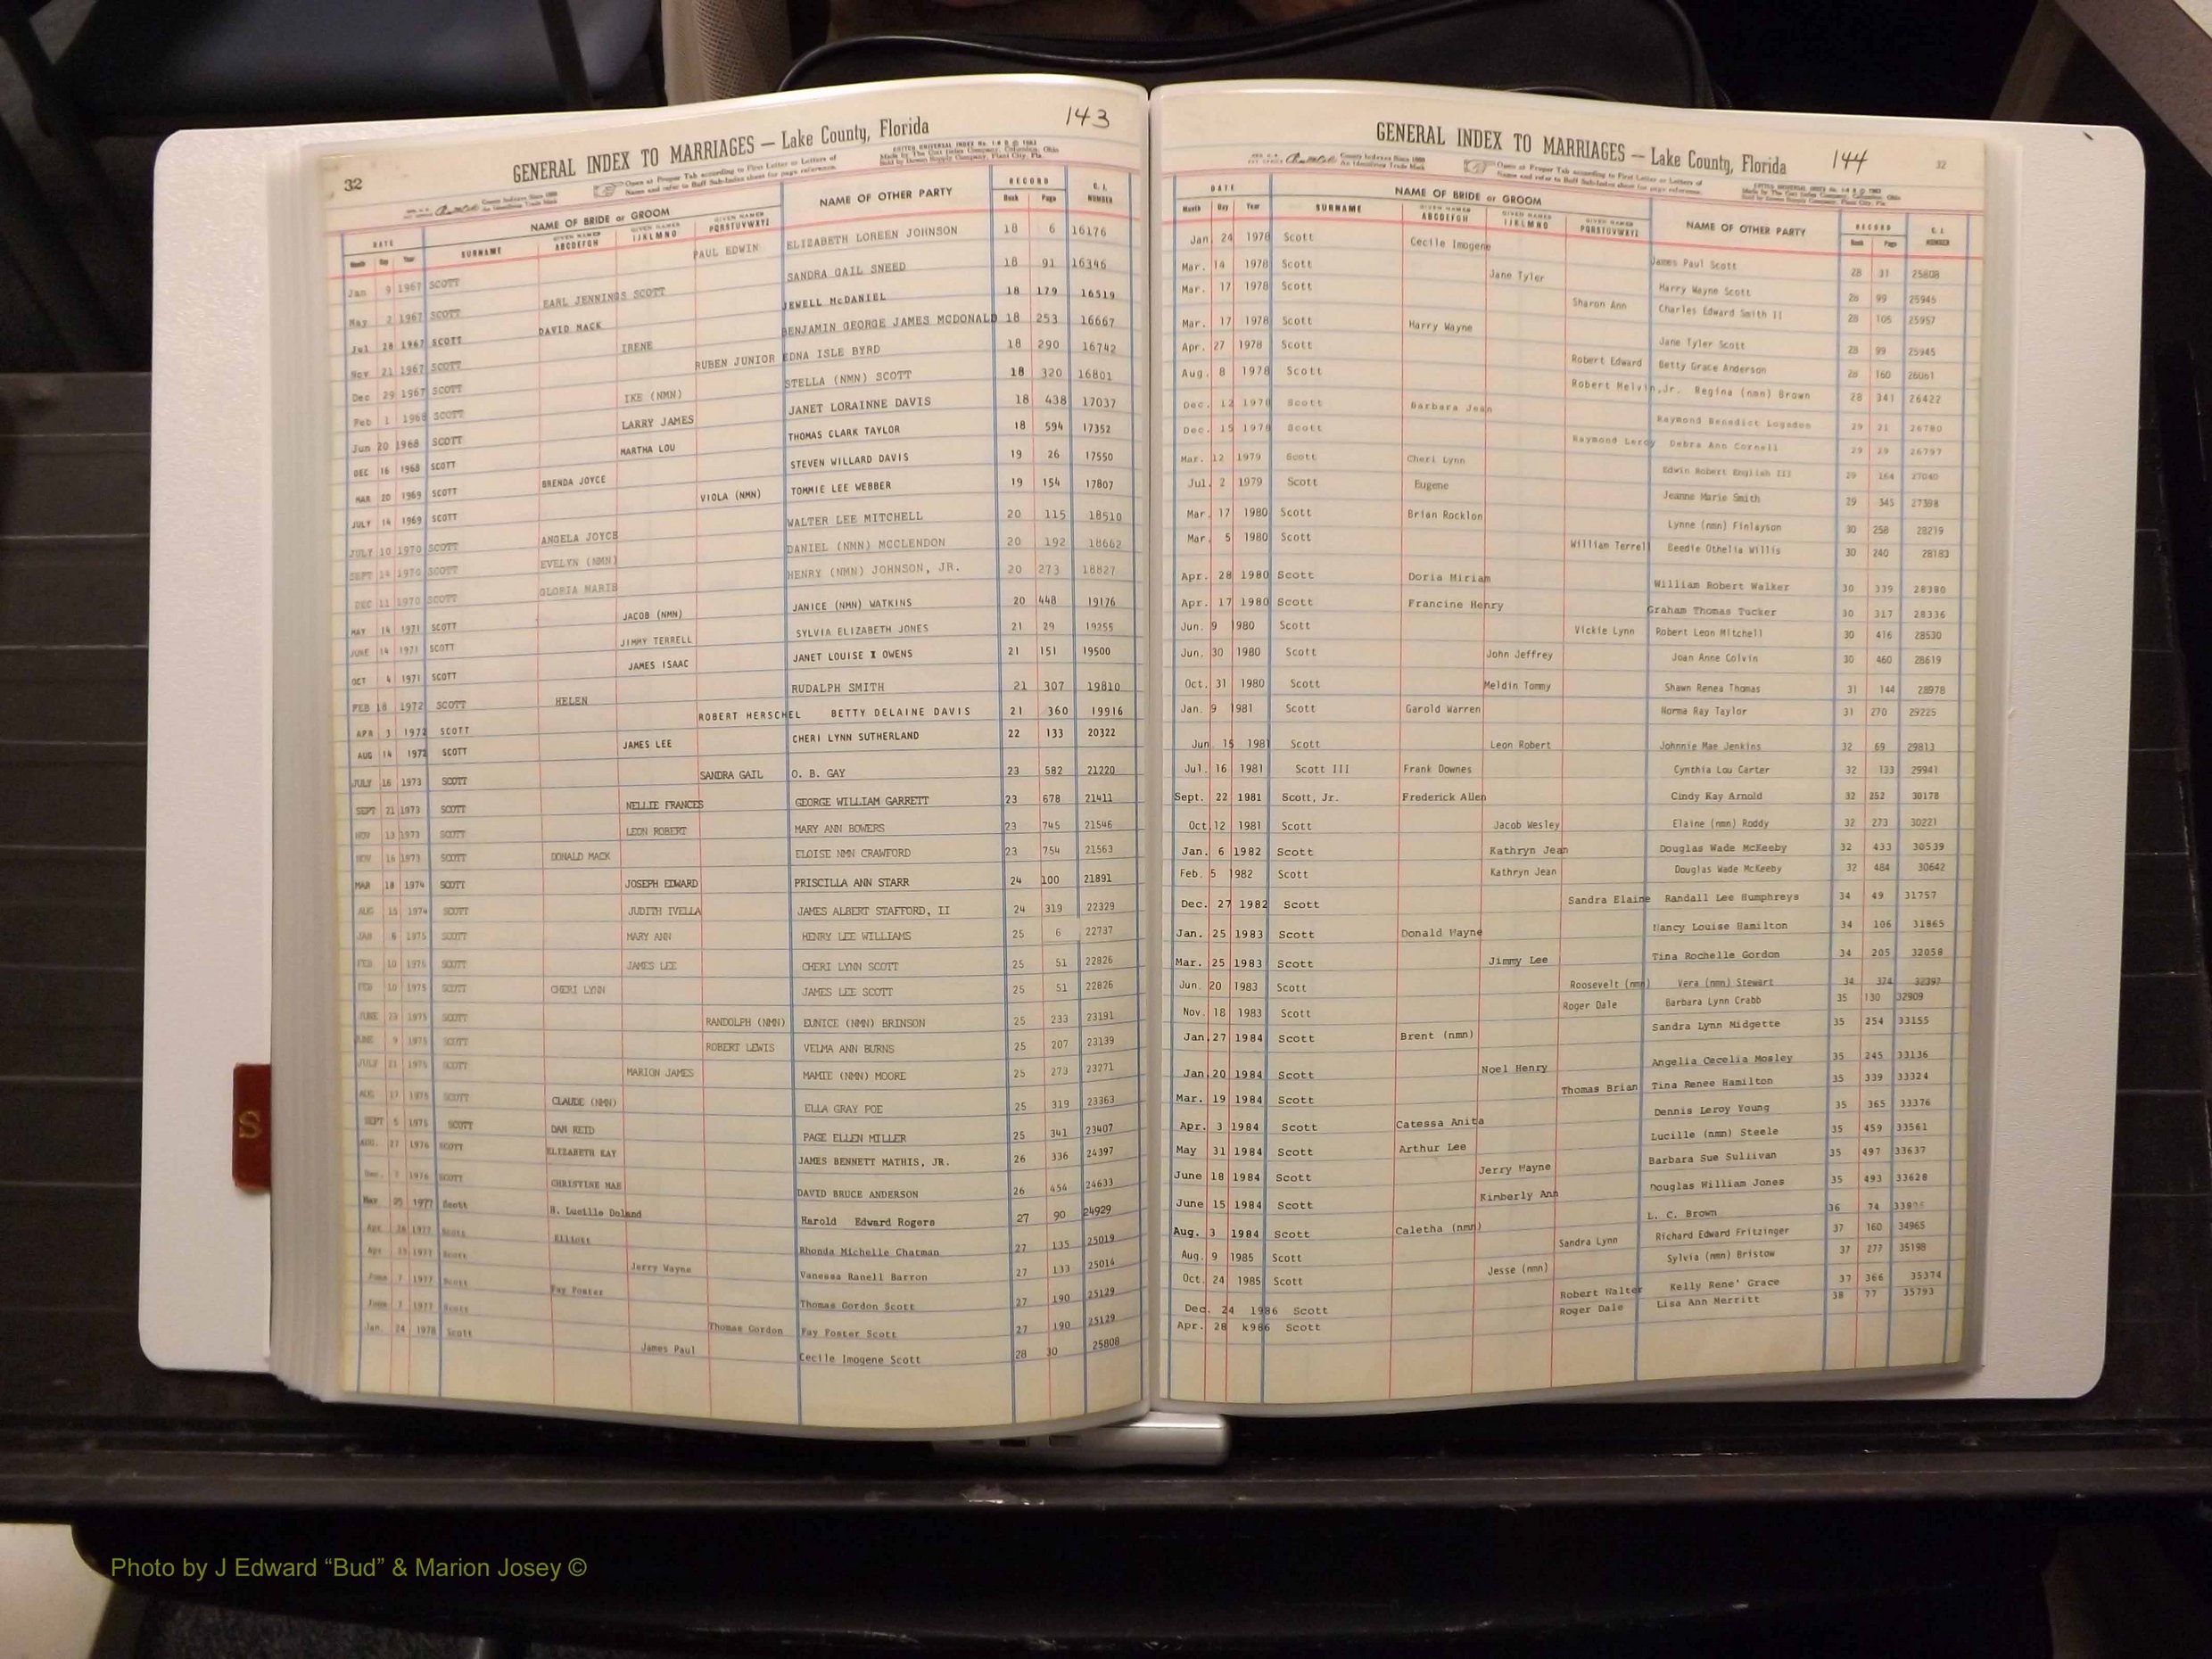 143
GENERAL INDEX TO MARRIAGES — Lake County, Florida
32
County Indexes Since 1888
An Identifying Trade Mark
Open at Proper Tab according to First Letter or Letters of
Name and refer to Buff Sub-Index sheet for page reference.
Made by The Cott Index Company, Columbus, Ohio
Sold by Dowen Supply Company, Plant City, Fla.
DATE NAME OF BRIDE or GROOM NAME OF OTHER PARTY RECORD C. I. NUMBER
Month Day Year SURNAME GIVEN NAMES ABCDEFGH GIVEN NAMES IJKLMNO GIVEN NAMES PQRSTUVWXYZ Book Page
Jan 9 1967 SCOTT PAUL EDWIN ELIZABETH LOREEN JOHNSON 18 6 16176
May 2 1967 SCOTT EARL JENNINGS SCOTT SANDRA GAIL SNEED 18 91 16346
Jul 28 1967 SCOTT DAVID MACK JEWELL McDANIEL 18 179 16519
Nov 21 1967 SCOTT IRENE BENJAMIN GEORGE JAMES MCDONALD 18 253 16667
Dec 29 1967 SCOTT RUBEN JUNIOR EDNA ISLE BYRD 18 290 16742
Feb 1 1968 SCOTT IKE (NMN) STELLA (NMN) SCOTT 18 320 16801
Jun 20 1968 SCOTT LARRY JAMES JANET LORAINNE DAVIS 18 438 17037
DEC 16 1968 SCOTT MARTHA LOU THOMAS CLARK TAYLOR 18 594 17352
MAR 20 1969 SCOTT BRENDA JOYCE STEVEN WILLARD DAVIS 19 26 17550
JULY 14 1969 SCOTT VIOLA (NMN) TOMMIE LEE WEBBER 19 154 17807
JULY 10 1970 SCOTT ANGELA JOYCE WALTER LEE MITCHELL 20 115 18510
SEPT 14 1970 SCOTT EVELYN (NMN) DANIEL (NMN) MCCLENDON 20 192 18662
DEC 11 1970 SCOTT GLORIA MARIE HENRY (NMN) JOHNSON, JR. 20 273 18827
MAY 14 1971 SCOTT JACOB (NMN) JANICE (NMN) WATKINS 20 448 19176
JUNE 14 1971 SCOTT JIMMY TERRELL SYLVIA ELIZABETH JONES 21 29 19255
OCT 4 1971 SCOTT JAMES ISAAC JANET LOUISE X OWENS 21 151 19500
FEB 18 1972 SCOTT HELEN RUDALPH SMITH 21 307 19810
APR 3 1972 SCOTT ROBERT HERSCHEL BETTY DELAINE DAVIS 21 360 19916
AUG 14 1972 SCOTT JAMES LEE CHERI LYNN SUTHERLAND 22 133 20322
JULY 16 1973 SCOTT SANDRA GAIL O. B. GAY 23 582 21220
SEPT 21 1973 SCOTT NELLIE FRANCES GEORGE WILLIAM GARRETT 23 678 21411
NOV 13 1973 SCOTT LEON ROBERT MARY ANN BOWERS 23 745 21546
NOV 16 1973 SCOTT DONALD MACK ELOISE NMN CRAWFORD 23 754 21563
MAR 18 1974 SCOTT JOSEPH EDWARD PRISCILLA ANN STARR 24 100 21891
AUG 15 1974 SCOTT JUDITH IVELLA JAMES ALBERT STAFFORD, II 24 319 22329
JAN 6 1975 SCOTT MARY ANN HENRY LEE WILLIAMS 25 6 22737
FEB 10 1975 SCOTT JAMES LEE CHERI LYNN SCOTT 25 51 22826
FEB 10 1975 SCOTT CHERI LYNN JAMES LEE SCOTT 25 51 22826
JUNE 1975 SCOTT RANDOLPH (NMN) EUNICE (NMN) BRINSON 25 233 23191
JUNE 9 1975 SCOTT ROBERT LEWIS VELMA ANN BURNS 25 207 23139
JULY 21 1975 SCOTT MARION JAMES MAMIE (NMN) MOORE 25 273 23271
AUG 1975 SCOTT CLAUDE (NMN) ELLA GRAY POE 25 319 23363
SEPT 5 1975 SCOTT DAN REID PAGE ELLEN MILLER 25 341 23407
AUG. 27 1976 SCOTT ELIZABETH KAY JAMES BENNETT MATHIS, JR. 26 336 24397
Dec. 1976 SCOTT CHRISTINE MAE DAVID BRUCE ANDERSON 26 454 24633
Mar 25 1977 Scott H. Lucille Doland Harold Edward Rogers 27 90 24929
Apr. 1977 Scott Elliott Rhonda Michelle Chatman 27 135 25019
Apr 1977 Scott Jerry Wayne Vanessa Ranell Barron 27 133 25014
June 1 1977 Scott Fay Foster Thomas Gordon Scott 27 190 25129
June 1 1977 Scott Thomas Gordon Fay Foster Scott 27 190 25129
Jan. 24 1978 Scott James Paul Cecile Imogene Scott 28 30 25808
S
GENERAL INDEX TO MARRIAGES — Lake County, Florida 144
32
County Indexes Since 1888
An Identifying Trade Mark
Open at Proper Tab according to First Letter or Letters of
Name and refer to Buff Sub-Index sheet for page reference.
Made by The Cott Index Company, Columbus, Ohio
Sold by Dowen Supply Company, Plant City, Fla.
DATE NAME OF BRIDE or GROOM NAME OF OTHER PARTY RECORD C. I. NUMBER
Month Day Year SURNAME GIVEN NAMES ABCDEFGH GIVEN NAMES IJKLMNO GIVEN NAMES PQRSTUVWXYZ Book Page
Jan 24 1978 Scott Cecile Imogene James Paul Scott 28 31 25808
Mar. 14 1978 Scott Jane Tyler Harry Wayne Scott 28 99 25945
Mar. 17 1978 Scott Sharon Ann Charles Edward Smith II 28 105 25957
Mar. 17 1978 Scott Harry Wayne Jane Tyler Scott 28 99 25945
Apr. 27 1978 Scott Robert Edward Betty Grace Anderson 28 160 26061
Aug. 8 1978 Scott Robert Melvin,Jr. Regina (nmn) Brown 28 341 26422
Dec. 12 1978 Scott Barbara Jean Raymond Benedict Logsdon 29 21 26780
Dec. 15 1978 Scott Raymond Leroy Debra Ann Cornell 29 29 26797
Mar. 12 1979 Scott Cheri Lynn Edwin Robert English III 29 164 27040
Jul. 2 1979 Scott Eugene Jeanne Marie Smith 29 345 27398
Mar. 17 1980 Scott Brian Rocklon Lynne (nmn) Finlayson 30 258 28219
Mar. 5 1980 Scott William Terrell Beedie Othelia Willis 30 240 28183
Apr. 28 1980 Scott Doria Miriam William Robert Walker 30 339 28380
Apr. 17 1980 Scott Francine Henry Graham Thomas Tucker 30 317 28336
Jun. 9 1980 Scott Vickie Lynn Robert Leon Mitchell 30 416 28530
Jun. 30 1980 Scott John Jeffrey Joan Anne Colvin 30 460 28619
Oct. 31 1980 Scott Meldin Tommy Shawn Renea Thomas 31 144 28978
Jan. 9 1981 Scott Garold Warren Norma Ray Taylor 31 270 29225
Jun 15 1981 Scott Leon Robert Johnnie Mae Jenkins 32 69 29813
Jul. 16 1981 Scott III Frank Downes Cynthia Lou Carter 32 133 29941
Sept. 22 1981 Scott, Jr. Frederick Allen Cindy Kay Arnold 32 252 30178
Oct. 12 1981 Scott Jacob Wesley Elaine (nmn) Roddy 32 273 30221
Jan. 6 1982 Scott Kathryn Jean Douglas Wade McKeeby 32 433 30539
Feb. 5 1982 Scott Kathryn Jean Douglas Wade McKeeby 32 484 30642
Dec. 27 1982 Scott Sandra Elaine Randall Lee Humphreys 34 49 31757
Jan. 25 1983 Scott Donald Wayne Nancy Louise Hamilton 34 106 31865
Mar. 25 1983 Scott Jimmy Lee Tina Rochelle Gordon 34 205 32058
Jun. 20 1983 Scott Roosevelt (nmn) Vera (nmn) Stewart 34 374 32397
Nov. 18 1983 Scott Roger Dale Barbara Lynn Crabb 35 130 32909
Jan. 27 1984 Scott Brent (nmn) Sandra Lynn Midgette 35 254 33155
Jan. 20 1984 Scott Noel Henry Angelia Cecelia Mosley 35 245 33136
Mar. 19 1984 Scott Thomas Brian Tina Renee Hamilton 35 339 33324
Apr. 3 1984 Scott Catessa Anita Dennis Leroy Young 35 365 33376
May 31 1984 Scott Arthur Lee Lucille (nmn) Steele 35 459 33561
June 18 1984 Scott Jerry Wayne Barbara Sue Sullivan 35 497 33637
June 15 1984 Scott Kimberly Ann Douglas William Jones 35 493 33628
Aug. 3 1984 Scott Caletha (nmn) L. C. Brown 36 74
Aug. 9 1985 Scott Sandra Lynn Richard Edward Fritzinger 37 160 34965
Oct. 24 1985 Scott Jesse (nmn) Sylvia (nmn) Bristow 37 277 35198
Dec. 24 1986 Scott Robert Walter Kelly Rene' Grace 37 366 35374
Apr. 28 k986 Scott Roger Dale Lisa Ann Merritt 38 77 35793
Photo by J Edward “Bud” & Marion Josey ©